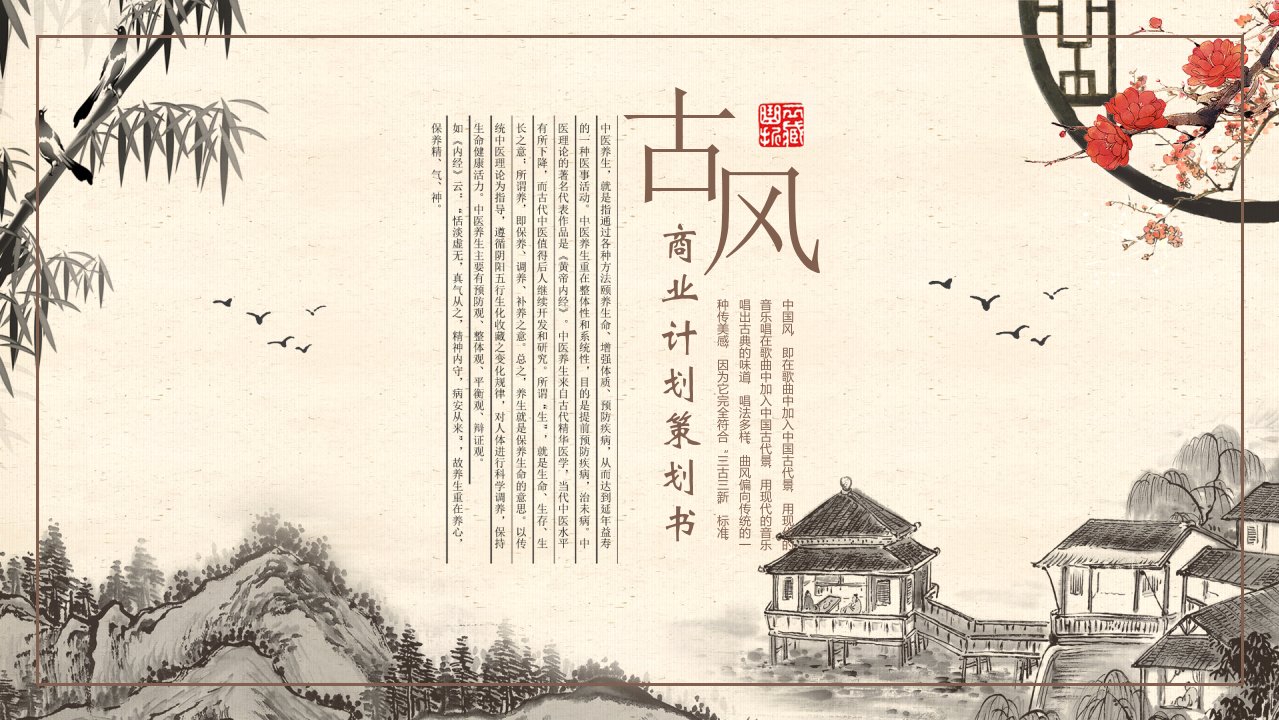 古风
商业计划策划书
中国风，即在歌曲中加入中国古代景，用现代的
音乐唱在歌曲中加入中国古代景，用现代的音乐
唱出古典的味道，唱法多样。曲风偏向传统的一
种传美感，因为它完全符合“三古三新”标准。
中医养生，就是指通过各种方法颐养生命、增强体质、预防疾病，从而达到延年益寿
的一种医事活动。中医养生重在整体性和系统性，目的是提前预防疾病，治未病。中
医理论的著名代表作品是《黄帝内经》。中医养生来自古代精华医学，当代中医水平
有所下降，而古代中医值得后人继续开发和研究。所谓“生”，就是生命、生存、生
长之意；所谓养，即保养、调养、补养之意。总之，养生就是保养生命的意思。以传
统中医理论为指导，遵循阴阳五行生化收藏之变化规律，对人体进行科学调养，保持
生命健康活力。中医养生主要有预防观、整体观、平衡观、辩证观。
如《内经》云：“恬淡虚无，真气从之，精神内守，病安从来”，故养生重在养心，
保养精、气、神。